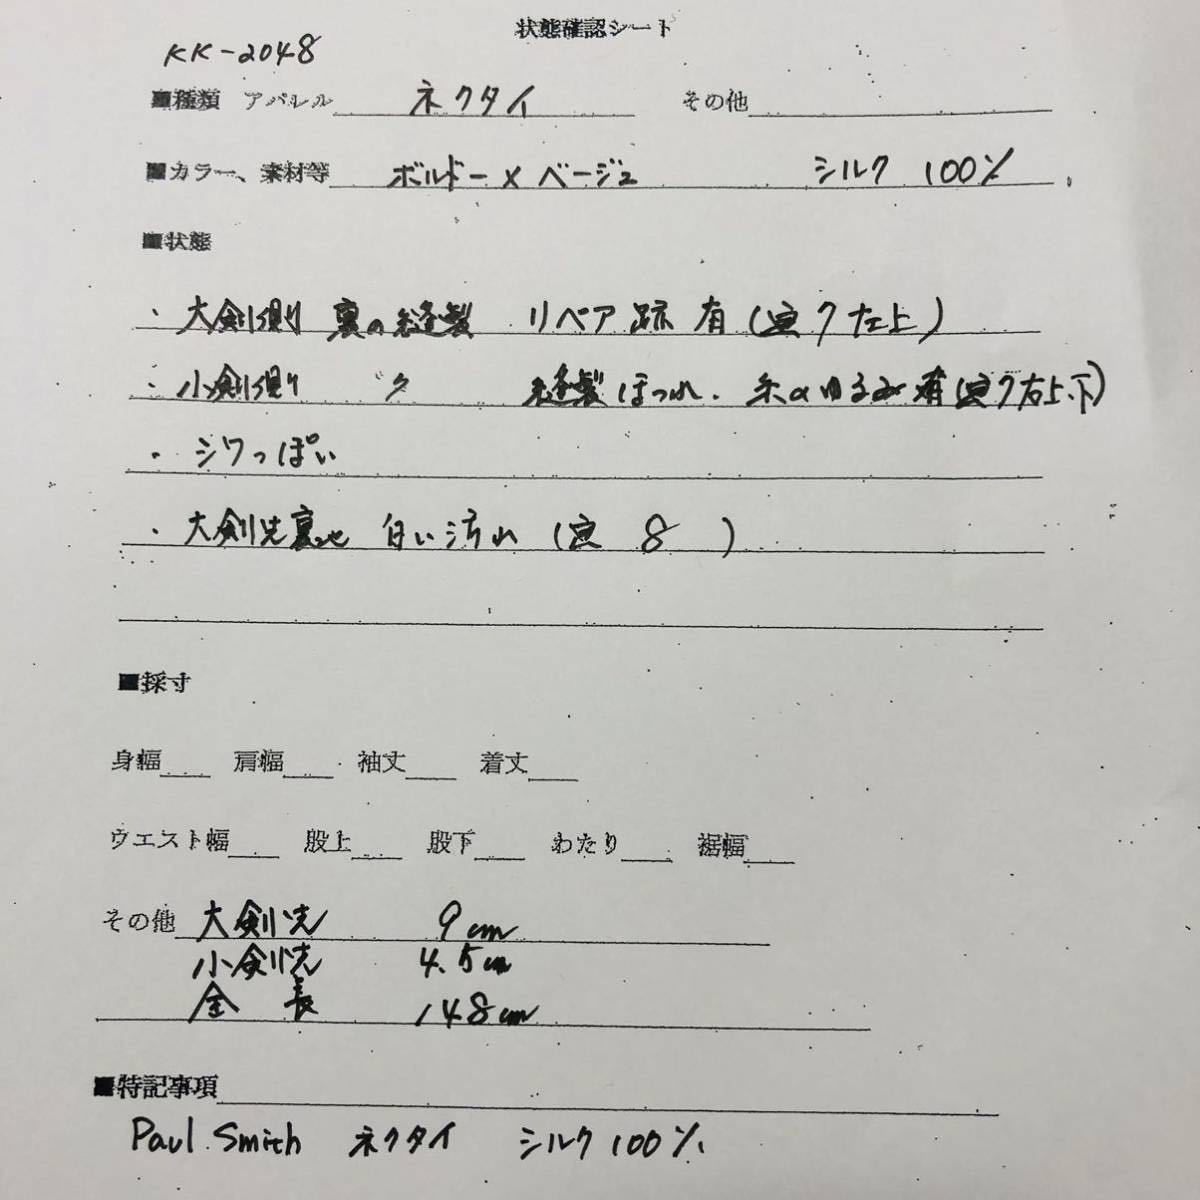 状態確認シート
KK-2048
■種類 アパレル ネクタイ その他
■カラー、素材等 ボルドー×ベージュ シルク 100%
■状態
・大剣側 裏の縫製 リペア跡 有(写7左上)
・小剣側 〃 縫製ほつれ、糸のゆるみ有(写7右上、下)
・シワっぽい
・大剣先裏地 白い汚れ(写 8 )
■採寸
身幅 肩幅 袖丈 着丈
ウエスト幅 股上 股下 わたり 裾幅
その他 大剣先 9cm
小剣先 4.5cm
全長 148cm
■特記事項
Paul Smith ネクタイ シルク100%